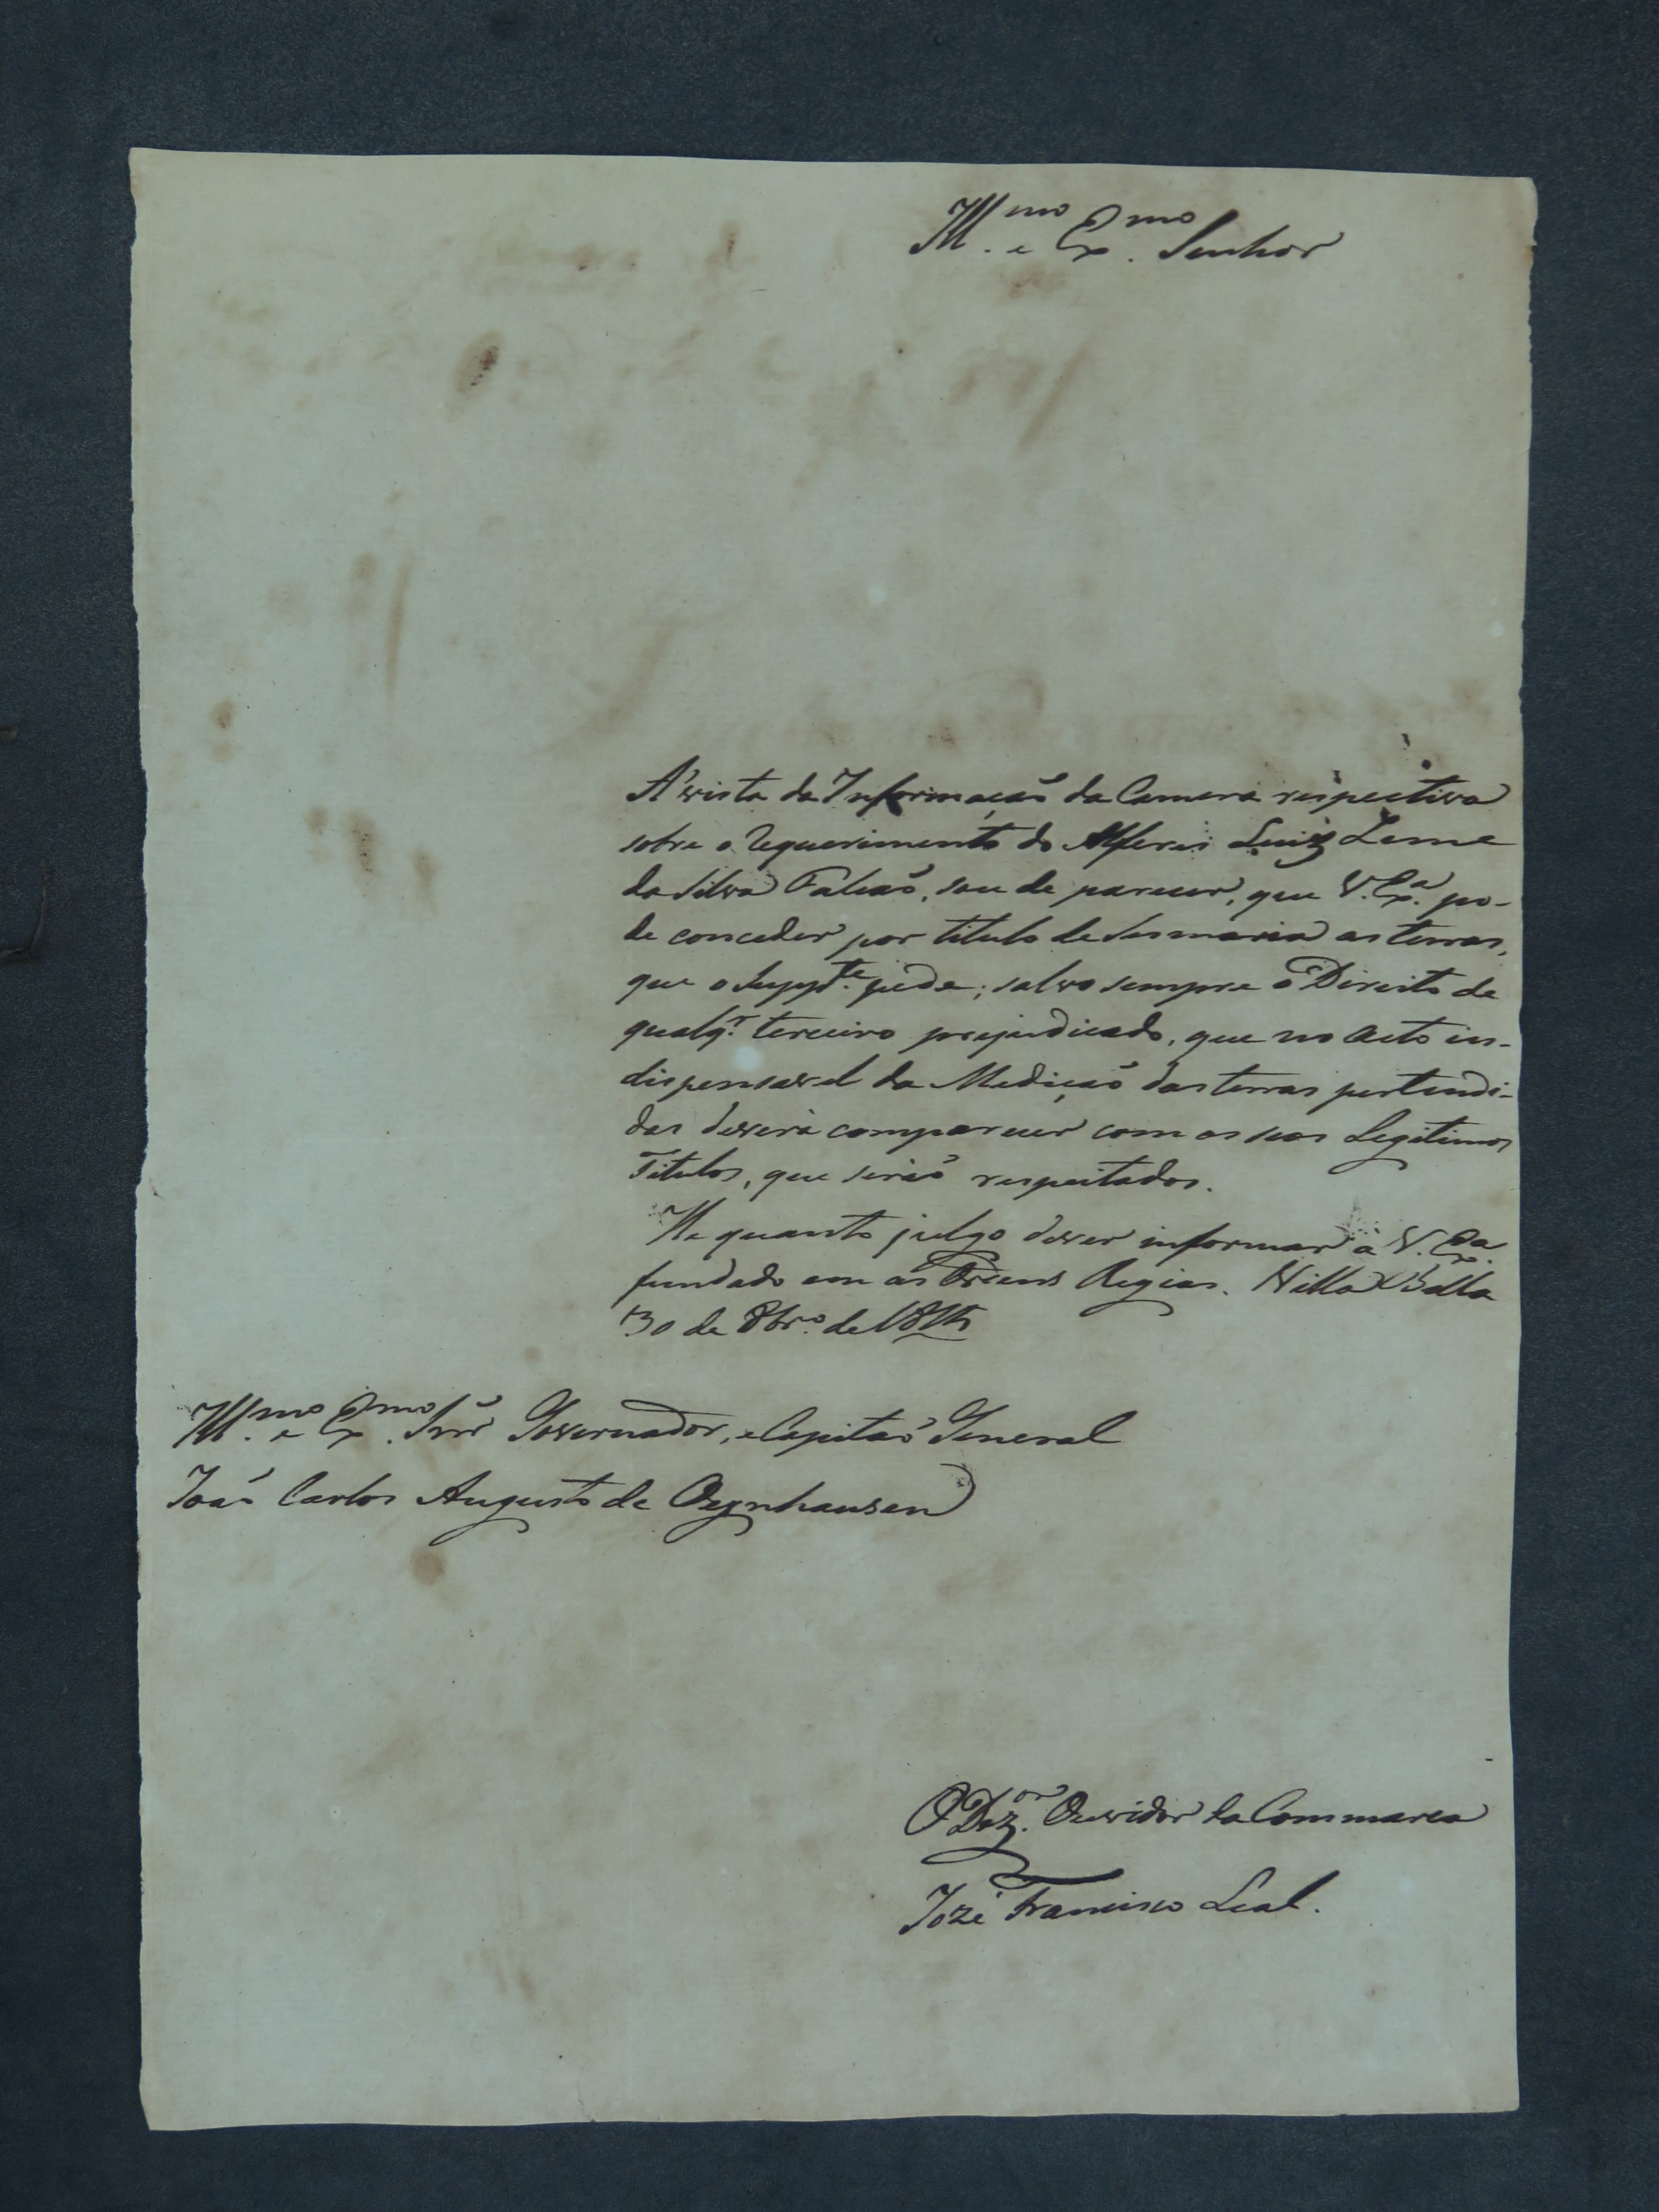 Ill.mo e Ex.mo Senhor
A' vista da Informação da Camera respectiva
sobre o Requerimento do Alferes Luiz Leme
da Silva Falcaõ, sou de parecer, que V. Ex.a po-
de conceder por titulo de Sesmaria as terras,
que o Supp.te pede; salvo sempre o Direito de
qualq.r terceiro prejudicado, que no Acto in-
dispensavel da Mediçaõ das terras pertendi-
das deverá comparecer com os seos Legitimos
Titulos, que seráõ respeitados.
He quanto julgo dever informar a V. Ex.a
fundado em as Ordens Regias. Villa Bella
30 de 8br.o de
Ill.mo e Ex.mo Snr' Governador, e Capitaõ General
Joaõ Carlos Augusto de Oeynhausen
O Dez.or Ouvidor da Commarca
Jozé Francisco Leal.